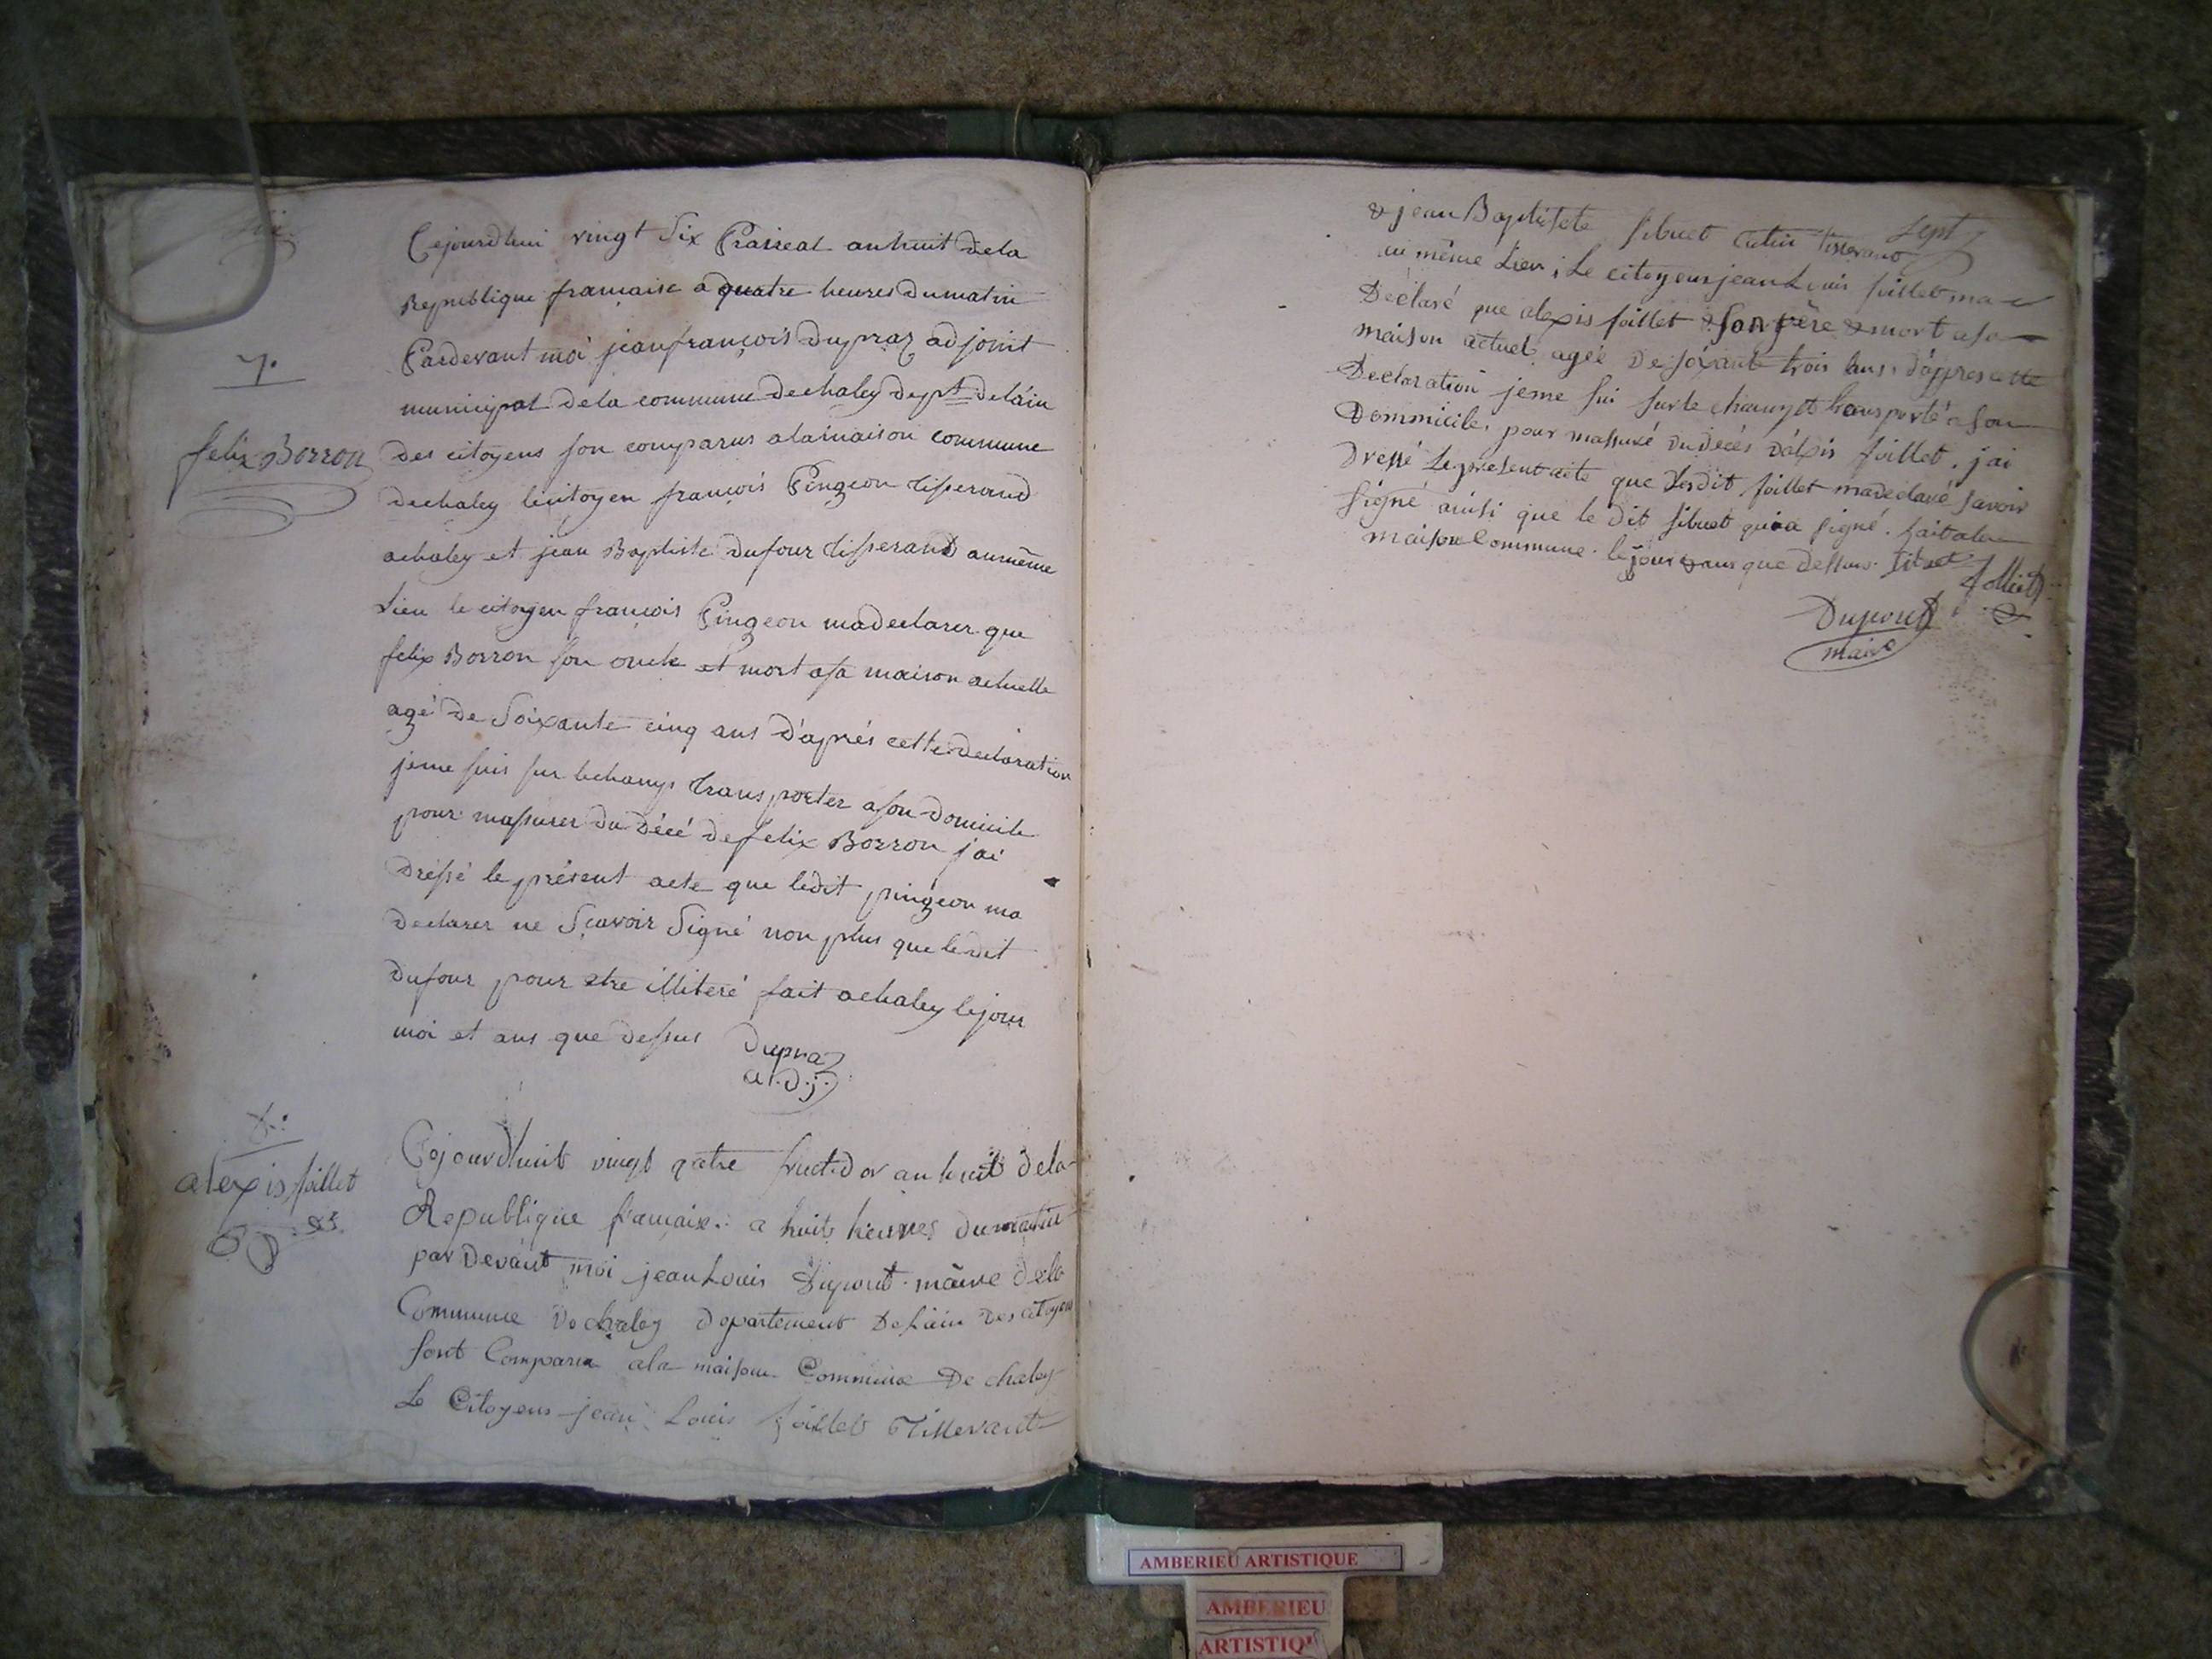 six.
7.
felix Borron
Cejourdhui vingt six Praireal an huit dela
Republique francaise a quatre heures dumatin
Pardevant moi jeanfrançois Dupraz adjoint
municipal dela commune dechaley dept delain
des citoyens son comparus alamaison commune
dechaley lecitoyen françois Pingeon tisserand
achaley et jean Baptiste dufour tisserand aumême
Lieu le citoyen françois Pingeon madeclarer que
felix Borron son oncle et mort asa maison actuelle
agé de Soixante cinq ans d'aprés cette declaration
jeme suis sur lechamps transporter ason domicile
pour massurer du décé defelix Borron jai
dréssé le présent acte que ledit pingeon ma
declarer ne Sçavoir Signé non plus que ledit
dufour pour etre illiteré fait achaley lejour
moi et ans que dessus Dupraz
a.d.j.
8.
alexis follet
Cejourdhuit vingt qatre fructidor an huit dela
Republique francaise. a huit heures dumatin
par Devant moi jean Louis Dupont maire dela
Commune De chaley departement De Lain Des citoyens
sont Comparu ala maison Commune De chaley
Le Citoyens jean Louis follet Tisserant
Sept
& jean Baptiste sibuet tisserand
au même Lieu ; Le citoyens jean Louis follet ma
Declaré que alexis follet son père & mort asa
maison actuel, agée De soixante trois ans. d'appres cette
Declaration jeme sui surle champt transporté a son
Dommicile, pour massuré du decés d'alexis follet. jai
Dressé Lepresent acte que Ledit follet madeclaré savoir
signé ainsi que le dit sibuet qui a signé. fait ala
maison Commune lejour & ans que dessus. sibuet
follet
Dupont
maire
AMBERIEU ARTISTIQUE
AMBERIEU
ARTISTIQ